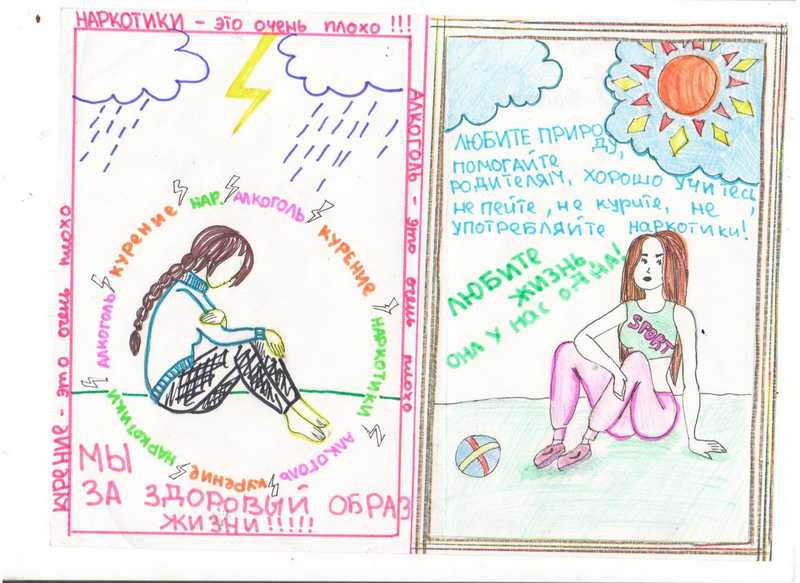 НАРКОТИКИ - это очень плохо !!!
АЛКОГОЛЬ - это очень плохо
КУРЕНИЕ - это очень плохо
НАР.
АЛКОГОЛЬ
КУРЕНИЕ
НАРКОТИКИ
АЛКОГОЛЬ
курение
НАРКОТИКИ
АЛКОГОЛЬ
КУРЕНИЕ
МЫ
ЗА ЗДОРОВЫЙ ОБРАЗ
ЖИЗНИ!!!!!
ЛЮБИТЕ ПРИРО
ДУ,
ПОМОГАЙТЕ
РОДИТЕЛЯМ, ХОРОШО УЧИТЕСЬ,
не пейте, не курите, не
употребляйте наркотики!
ЛЮБИТЕ
ЖИЗНЬ
ОНА У НАС ОДНА!
SPORT